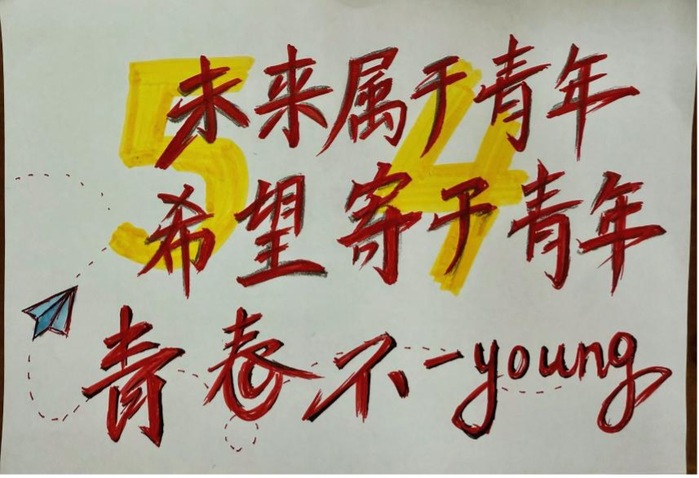 54
未来属于青年
希望寄于青年
青春不一young